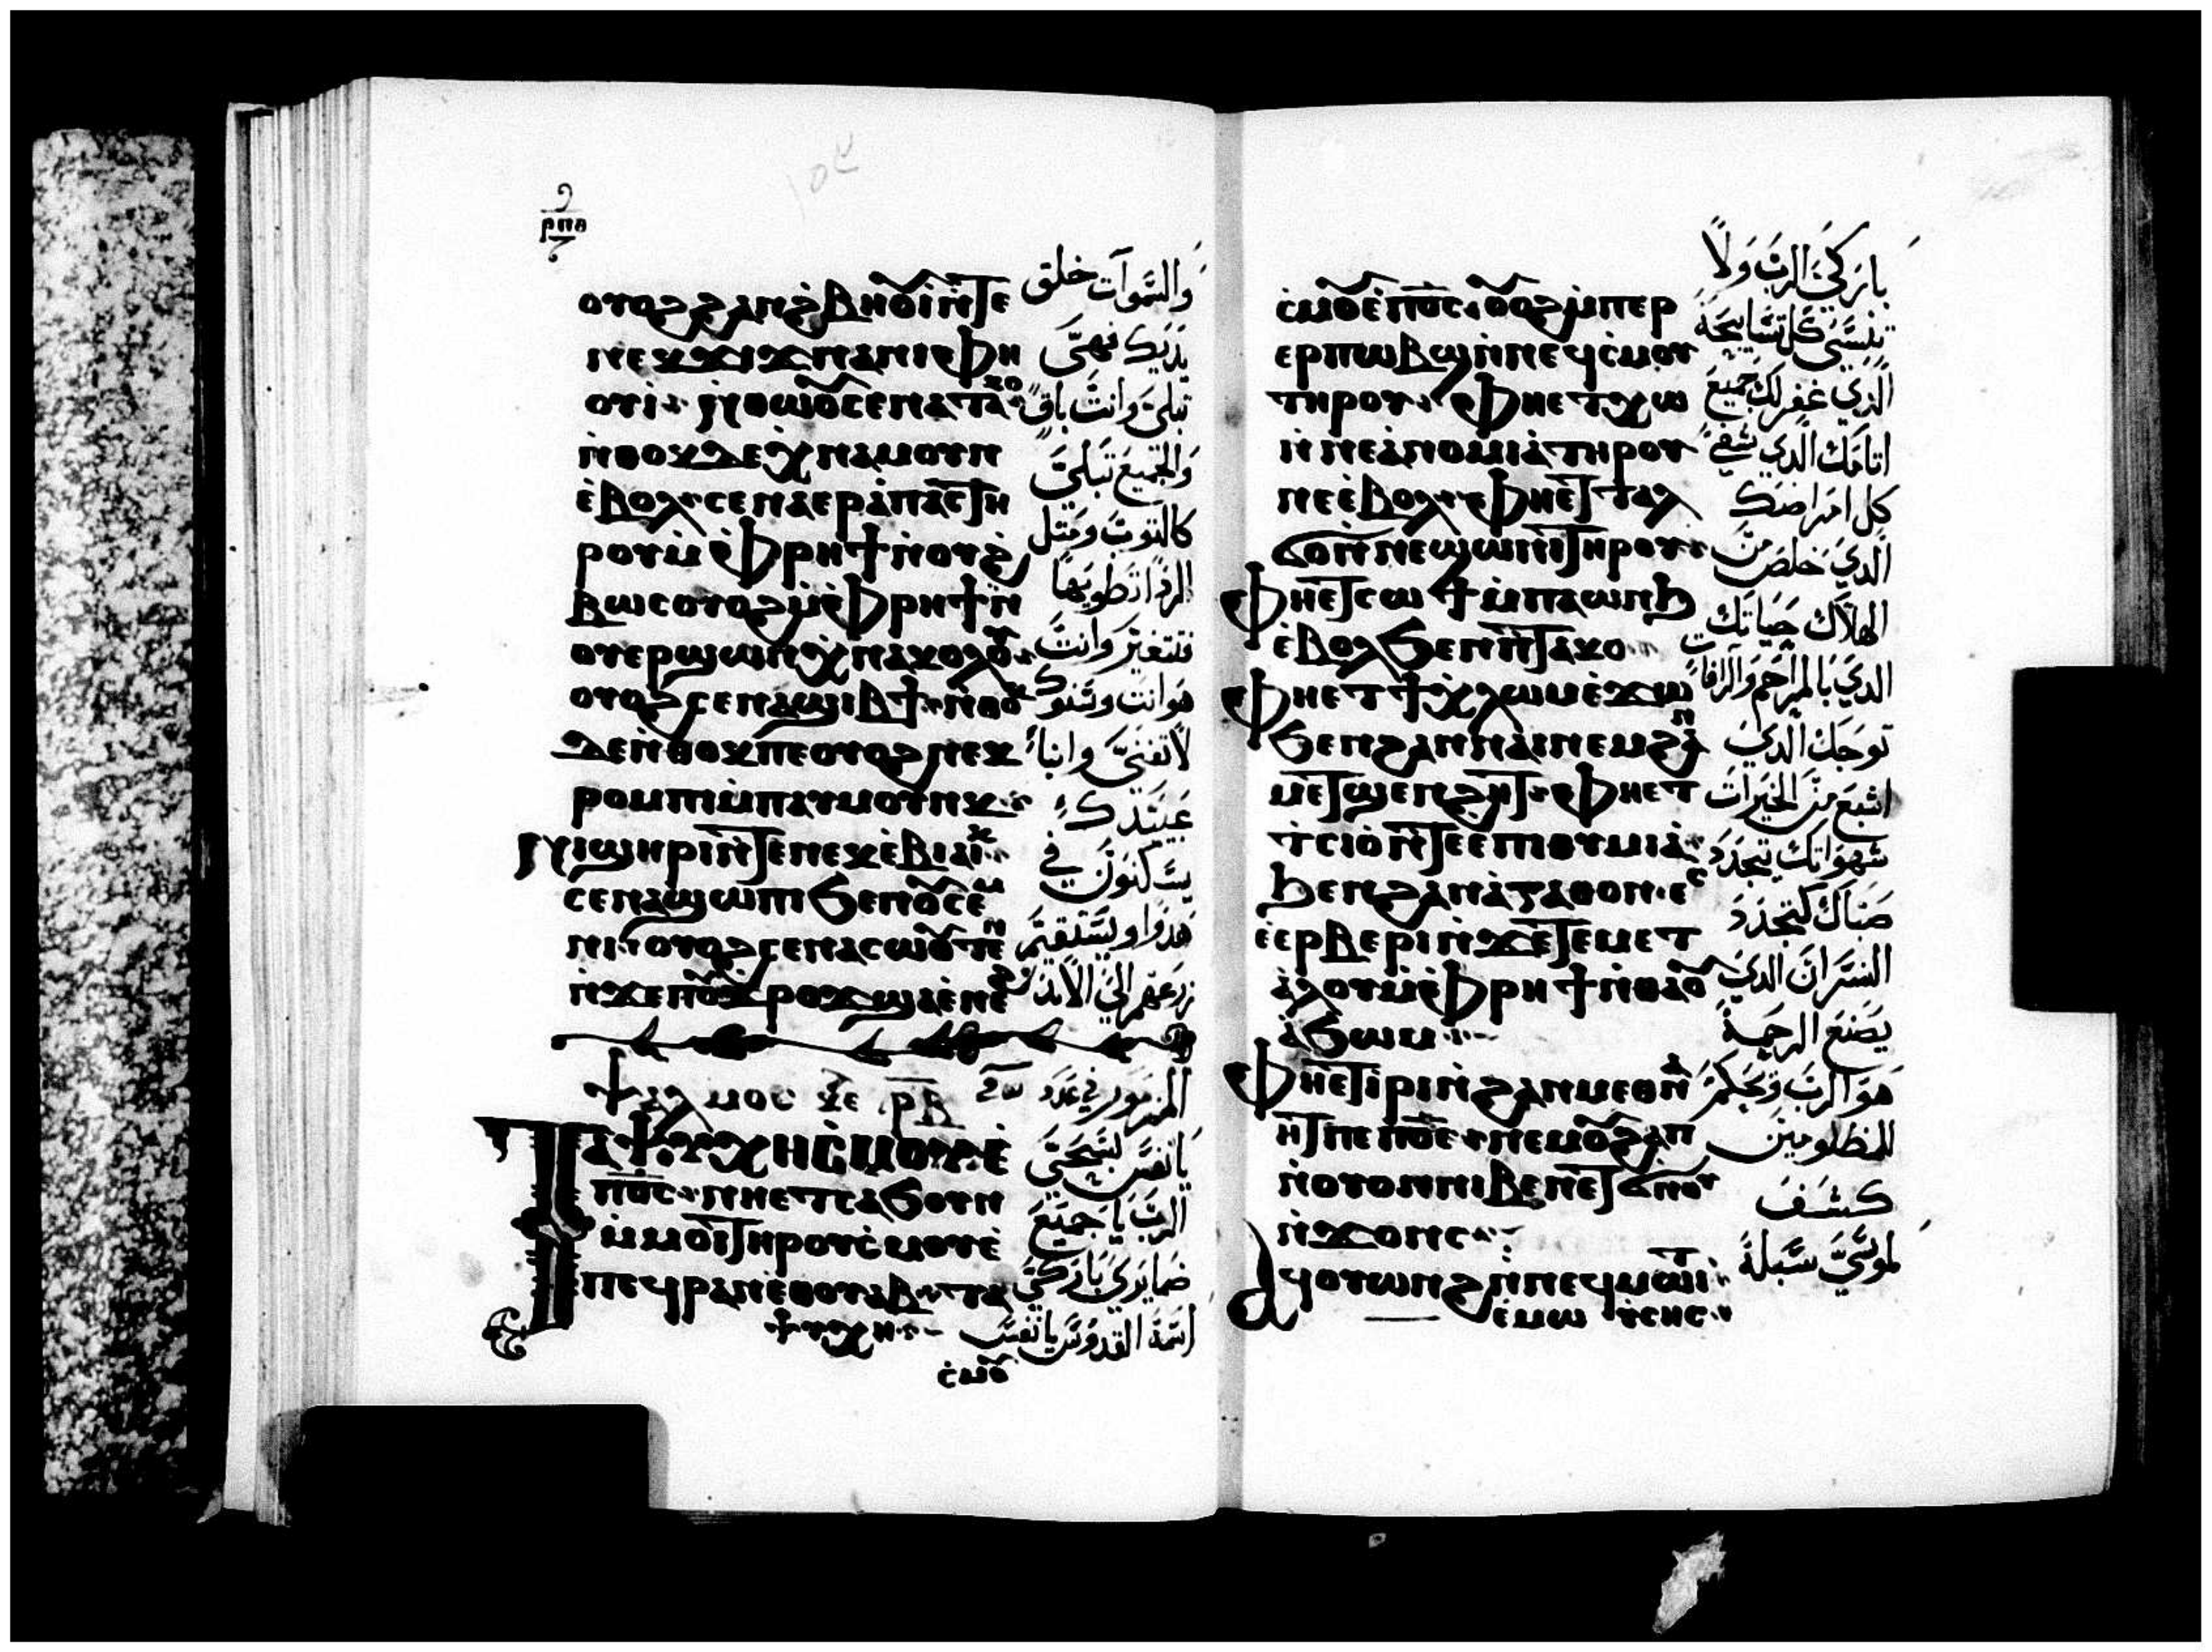 ⲣⲡⲑ
ⲟⲩⲟϩ ϩⲁⲛϩ̀ⲃⲏⲟⲩⲓ̀ ⲛ̀ⲧⲉ
ⲛⲉⲕϫⲓϫ ⲛⲉ ⲛⲓⲫⲏ
ⲟⲩⲓ̀ ⲛ̀ⲑⲱⲟⲩ ⲥⲉⲛⲁⲧⲁⲕⲟ
ⲛ̀ⲑⲟⲕ ⲇⲉ ⲭ̀ⲛⲁⲙⲟⲩⲛ
ⲉ̀ⲃⲟⲗ ⲥⲉⲛⲁⲉⲣⲁ̀ⲡⲁⲥ ⲧⲏ
ⲣⲟⲩ ⲙ̀ⲫ̀ⲣⲏϯ ⲛ̀ⲟⲩϩ̀
ⲃⲱⲥ ⲟⲩⲟϩ ⲙ̀ⲫ̀ⲣⲏϯ ⲛ̀
ⲟⲩⲉⲣϣⲱⲛ ⲭ̀ⲛⲁⲕⲟⲗⲟⲩ
ⲟⲩⲟϩ ⲥⲉⲛⲁϣⲓⲃϯ ⲛ̀ⲑⲟⲕ
ⲇⲉ ⲛ̀ⲑⲟⲕ ⲡⲉ ⲟⲩⲟϩ ⲛⲉⲕ
ⲣⲟⲙⲡⲓ ⲙ̀ⲡⲁⲩⲙⲟⲩⲛⲕ
ⲛⲓϣⲏⲣⲓ ⲛ̀ⲧⲉ ⲛⲉⲕⲉ̀ⲃⲓⲁⲓⲕ
ⲥⲉⲛⲁϣⲱⲡⲓ ϧⲉⲛ ⲟⲩⲥⲉⲙ
ⲛⲓ ⲟⲩⲟϩ ⲥⲉⲛⲁⲥⲱⲟⲩⲧⲉⲛ
ⲛ̀ϫⲉ ⲡⲟⲩϫⲣⲟϫ ϣⲁⲉ̀ⲛⲉϩ
ⲯⲁⲗⲙⲟⲥ ⲣⲃ
ⲧⲁⲯⲩⲭⲏ ⲥ̀ⲙⲟⲩ ⲉ̀
ⲡⲟ̅ⲥ̅ ⲛⲏⲉⲧⲥⲁϧⲟⲩⲛ
ⲙ̀ⲙⲟⲓ ⲧⲏⲣⲟⲩ ⲥ̀ⲙⲟⲩ ⲉ̀
ⲡⲉϥⲣⲁⲛ ⲉⲑⲟⲩⲁⲃ ⲧⲁ
ⲯⲩⲭⲏ
ⲥ̀ⲙⲟⲩ
والسموات خلق
يديك فهي
تبلي وانت باق
والجميع تبلي
كالثوب ومتل
الردا تطويها
فتتغير وانت
هو انت وسنوك
لا تفني وابنا
عبيدك
يسكنون في
هدوا ويستقيم
زرعهم الي الابد
المزمور في عدد
يا نفسي سبحي
الرب يا جميع
ضمايري باركي
اسمه القدوس يا نفسي
ⲥ̀ⲙⲟⲩ ⲉ̀ⲡⲟ̅ⲥ̅ ⲟⲩⲟϩ ⲙ̀ⲡⲉⲣ
ⲉⲣⲡⲱⲃϣ ⲛ̀ⲛⲉϥⲥ̀ⲙⲟⲩ
ⲧⲏⲣⲟⲩ ⲫⲏⲉⲧⲭⲱ
ⲛ̀ⲛⲉⲁ̀ⲛⲟⲙⲓⲁ̀ ⲧⲏⲣⲟⲩ
ⲛⲉ ⲉ̀ⲃⲟⲗ ⲫⲏⲉⲧⲧⲁⲗ
ϭⲟ ⲛ̀ⲛⲉϣⲱⲛⲓ ⲧⲏⲣⲟⲩ
ⲫⲏⲉⲧⲥⲱϯ ⲙ̀ⲡⲁⲱⲛϧ
ⲉ̀ⲃⲟⲗ ϧⲉⲛ ⲡ̀ⲧⲁⲕⲟ
ⲫⲏⲉⲧϯ ⲭ̀ⲗⲟⲙ ⲉ̀ϫⲱ
ϧⲉⲛ ϩⲁⲛⲛⲁⲓ ⲛⲉⲙ ϩⲁⲛ
ⲙⲉⲧϣⲉⲛϩⲏⲧ ⲫⲏⲉⲧ
ⲧⲥⲓⲟ̀ ⲛ̀ⲧⲉⲉⲡⲓⲑⲩⲙⲓⲁ̀
ϧⲉⲛ ϩⲁⲛⲁ̀ⲅⲁⲑⲟⲛ ⲉⲥ
ⲉ̀ⲉⲣⲃⲉⲣⲓ ⲛ̀ϫⲉ ⲧⲉⲙⲉⲧ
ⲁ̀ⲗⲟⲩ ⲙ̀ⲫ̀ⲣⲏϯ ⲛ̀ⲑⲁⲟⲩ
ⲁ̀ϧⲱⲙ
ⲫⲏⲉⲧⲓⲣⲓ ⲛ̀ϩⲁⲛⲙⲉⲑⲛⲁ
ⲏⲧ ⲡⲉ ⲡⲟ̅ⲥ̅ ⲛⲉⲙ ⲟⲩϩⲁⲡ
ⲛ̀ⲟⲩⲟⲛ ⲛⲓⲃⲉⲛ ⲉⲧϭⲛⲟⲩ
ⲛ̀ϫⲟⲛⲥ
ⲁϥⲟⲩⲱⲛϩ ⲛ̀ⲛⲉϥⲙⲱⲓⲧ
ⲉ̀ⲙⲱⲩⲥⲏⲥ
باركي الرب ولا
تنسي كل تسابيحه
الذي غفر لك جميع
اتامك الدي شفي
كل امراضك
الدي خلص من
الهلاك حياتك
الدي بالمراحم والرافات
توجك الدي
اشبع من الخيرات
شهواتك يتجدد
صباك كتجدد
النسر ان الدي
يصنع الرحمة
هو الرب ويحكم
للمظلومين
كشف
لموسي سبله